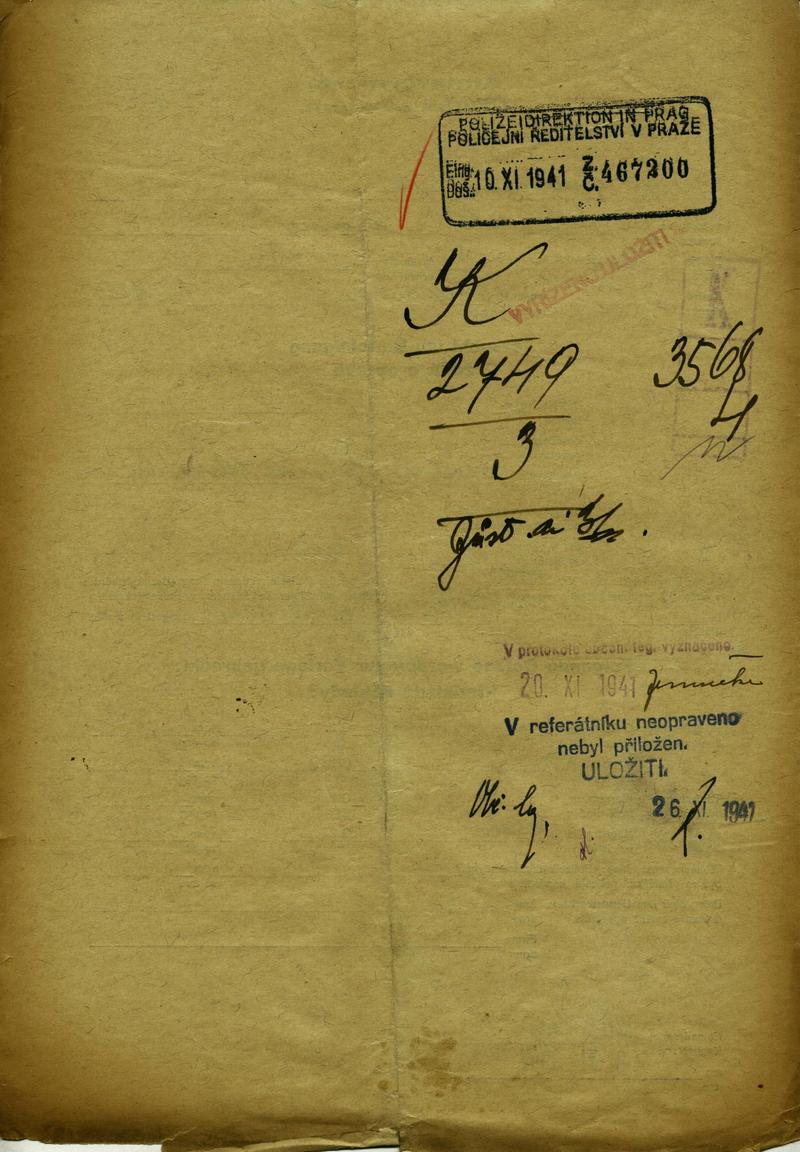 POLIZEIDIREKTION IN PRAG
POLICEJNÍ ŘEDITELSTVÍ V PRAZE
Eing. Doš. 10. XI. 1941 Z. Č. 467200
VYŘÍZENO, ULOŽITI
K
2749
3568
4
3
V protokole všeob. reg. vyznačeno.
20. XI 1941
V referátníku neopraveno
nebyl přiložen.
ULOŽITI.
26. XI 1941